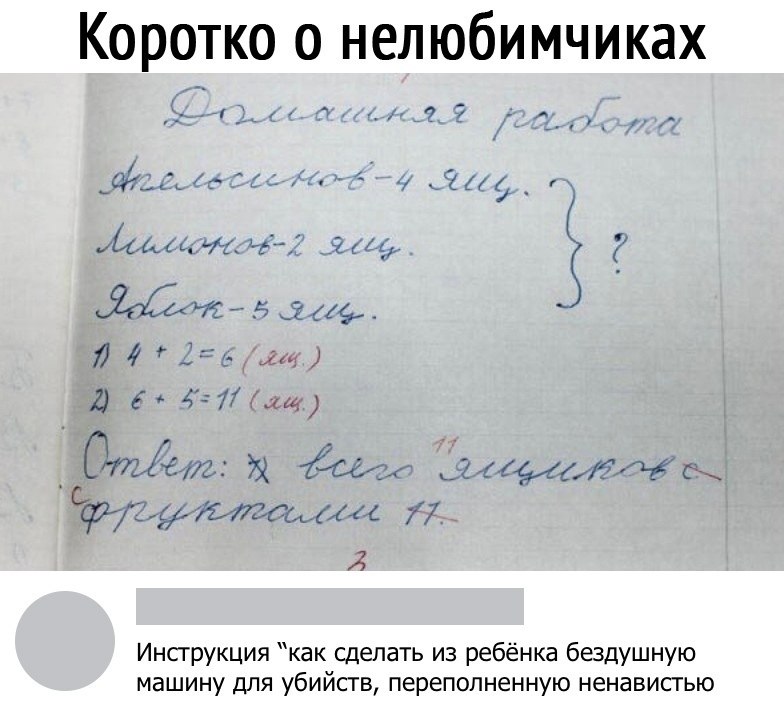 Коротко о нелюбимчиках
Домашняя работа
Апельсинов-4 ящ.
Лимонов-2 ящ.
Яблок-5 ящ.
?
1) 4 + 2=6 (ящ.)
2) 6 + 5=11 (ящ.)
Ответ: всего 11 ящиков с
с фруктами 11.
3
Инструкция "как сделать из ребёнка бездушную
машину для убийств, переполненную ненавистью